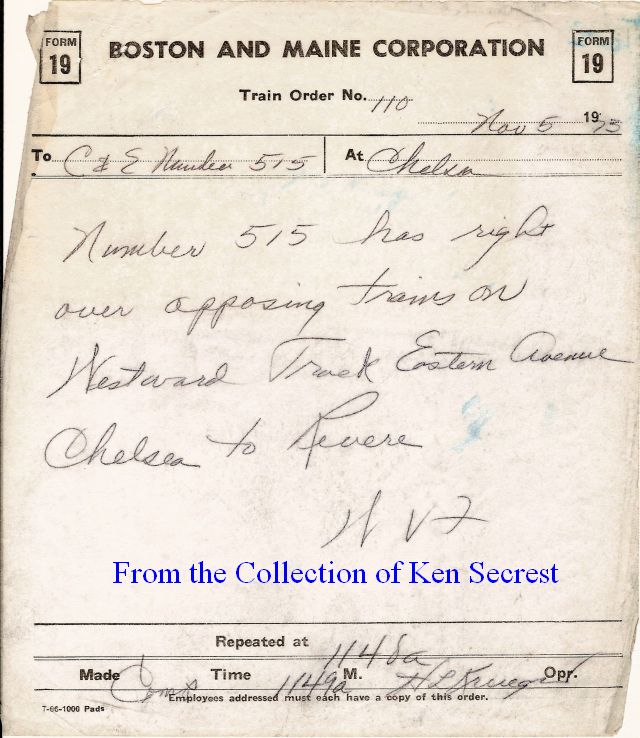 FORM 19
BOSTON AND MAINE CORPORATION
FORM 19
Train Order No. 110
Nov 5 1975
To C & E Number 515 At Chelsea
Number 515 has right
over opposing trains on
Westward Track Eastern Avenue
Chelsea to Revere
From the Collection of Ken Secrest
Repeated at 1148a
Made Comp Time 1149a M. Opr.
Employees addressed must each have a copy of this order.
7-66-1000 Pads